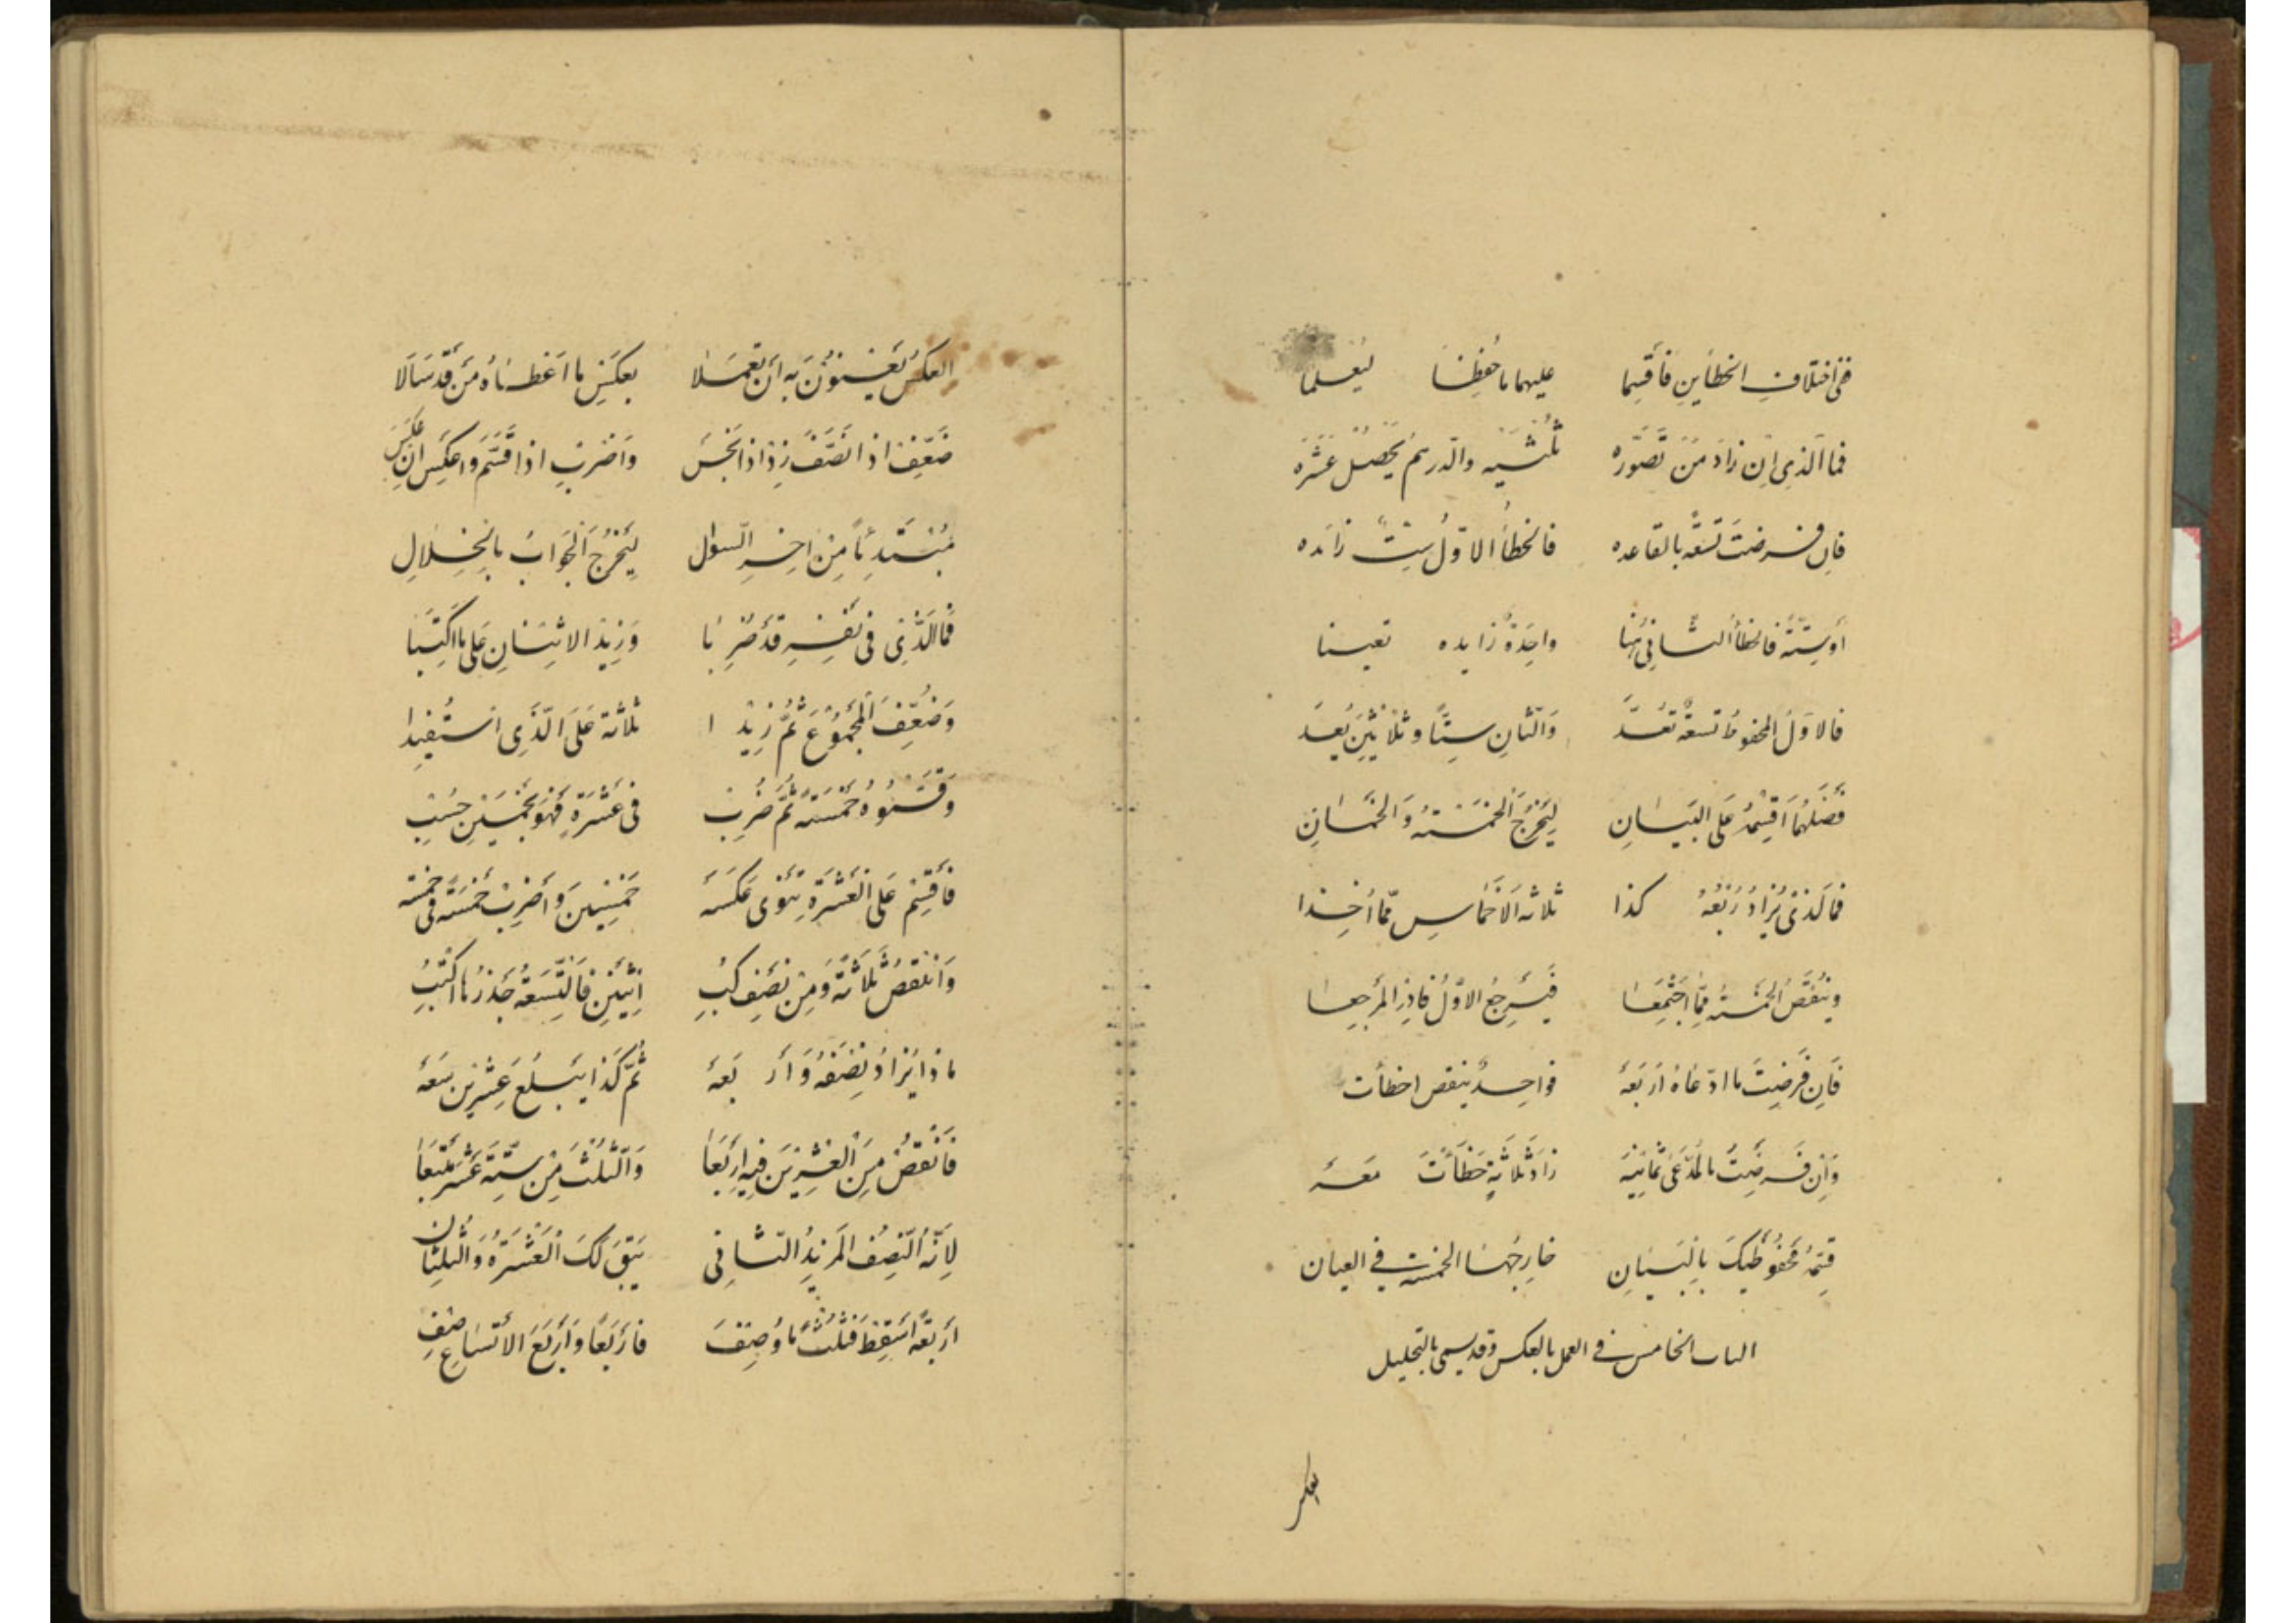 فی اختلاف الخطأین فأقسما علیهما ما حُفِظَا لیُعلما
فما الّذی ان زادَ مَن تَصوّره ثُلثَیه والدّرهَم یَحصُل عَشَره
فان فرضتَ تسعَةً بالقاعده فالخطأ الاوّلُ ستٌّ زائده
أو ستّةً فالخطأ الثانی هنا واحِدَةٌ زایده تعینا
فالاوّلُ المحفوظُ تسعةٌ تُعَدّ والثانِ ستًّا وثلاثین یُعَدّ
فَضلَهُما اقسِمهُ علی البَیَانِ لیَخرُجَ الخَمسَةُ وَالخُمسَانِ
فمالّذی یُزادُ رُبعُهُ کذا ثلاثه الاخماسِ ممّا اُخِذا
ویُنقَصُ الخَمسَةُ ممّا اجتَمَعَا فَیَرجِعُ الاوّلُ فادرِ المَرجِعا
فَإن فَرضتَ ما ادّعاهُ اَربَعَة فواحِدٌ ینقص اخطأت
وَإن فَرضتَ المُدّعی ثَمانِیَة زادَ ثلاثةٍ خَطَأتَ مَعَه
قِسمَةُ مَحفُوظَیکَ بالبَیَانِ خارِجُهَا الخمسة فی العیان
الباب الخامس فی العمل بالعکس وقد یسمی بالتحلیل
العکس
العکسُ یَعنُونَ بِه أن تَعمَلا بِعَکسِ ما اَعطاهُ مَن قَد سَأَلا
ضَعِّف اذا نَصَّفَ زِد اذا نَجَسَ وَاضرِب اذا قَسَّمَ واعکِس ان عَکَسَ
مُبتَدِئًا مِن آخِرِ السّؤالِ لِیَخرُجَ الجَوابُ بانحِلالِ
فَمَا الَّذِی فی نَفسِه قَد ضُرِبَا وَزِیدَ الاثنَانِ عَلی ما اکتُتِبَا
وَضُعِّفَ المَجمُوعُ ثُمَّ زِیدا ثلاثة عَلَی الّذی استُفِیدا
وَقَسَّمُوهُ خَمسَةً ثُمَّ ضُرِب فی عَشرَةٍ فَهوَ بِخَمسِینَ حُسِب
فَأقسِم عَلَی العَشرَةِ تَنوی عَکسَه خَمسِینَ وَأضرِب خَمسَةً فی خَمسَة
وَانقُص ثَلاثَةً وَمِن نِصفٍ کُتِب إثنَینِ فَالتِّسعَةُ جَذرُها اکتُتِب
ماذا یُزادُ نِصفُهُ وَأَربَعَة ثُمَّ کَذا یَبلُغُ عِشرِینَ مَعَه
فَانقُص مِنَ العِشرِینَ فِیهِ أَربَعَا وَالثُّلثَ مِن سِتَّةَ عَشرَ تُتبَعا
لِأنّهُ النّصفُ المَزیدُ الثانی یَبقَ لَکَ العَشرَةُ وَالثُلثانِ
اَربَعَةً أَسقِط فَثُلثُ ما وُصِف فاَربَعًا وَأربَعَ الأتسَاعِ صِف